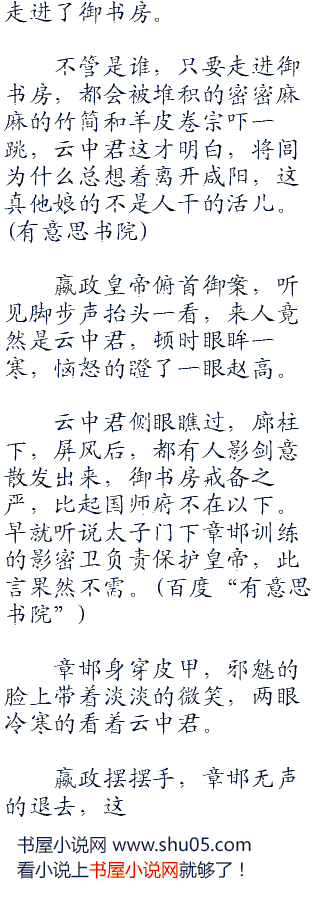 走进了御书房。
不管是谁，只要走进御
书房，都会被堆积的密密麻
麻的竹简和羊皮卷宗吓一
跳，云中君这才明白，将闾
为什么总想着离开咸阳，这
真他娘的不是人干的活儿。
(有意思书院)
嬴政皇帝俯首御案，听
见脚步声抬头一看，来人竟
然是云中君，顿时眼眸一
寒，恼怒的瞪了一眼赵高。
云中君侧眼瞧过，廊柱
下，屏风后，都有人影剑意
散发出来，御书房戒备之
严，比起国师府不在以下。
早就听说太子门下章邯训练
的影密卫负责保护皇帝，此
言果然不需。(百度“有意思
书院”)
章邯身穿皮甲，邪魅的
脸上带着淡淡的微笑，两眼
冷寒的看着云中君。
嬴政摆摆手，章邯无声
的退去，这
书屋小说网 www.shu05.com
看小说上书屋小说网就够了！